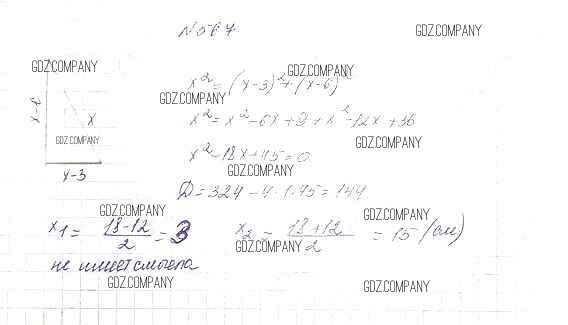 № 567
GDZ.COMPANY
GDZ.COMPANY
GDZ.COMPANY
x² = (x-3)² + (x-6)²
GDZ.COMPANY
x
x² = x² - 6x + 9 + x² - 12x + 36
GDZ.COMPANY
GDZ.COMPANY
x² - 18x + 45 = 0
GDZ.COMPANY
x-3
D = 324 - 4·1·45 = 144
GDZ.COMPANY
GDZ.COMPANY
x₁ = (18-12)/2 = 3
x₂ = (18+12)/2 = 15 (см)
GDZ.COMPANY
не имеет смысла
GDZ.COMPANY
GDZ.COMPANY